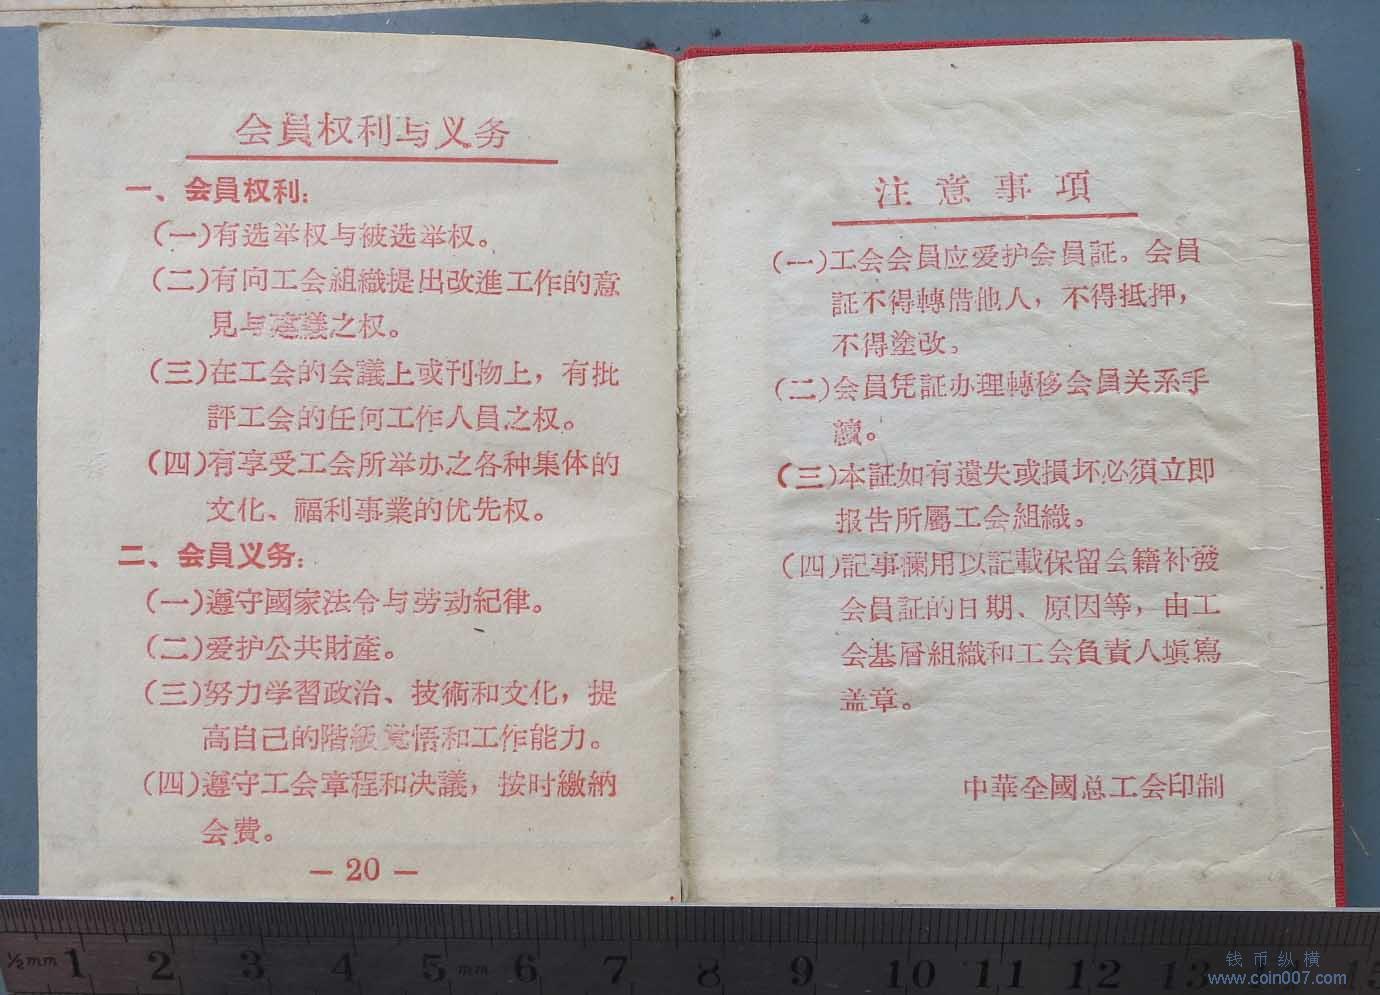 会員权利与义务
一、会員权利：
(一)有选举权与被选举权。
(二)有向工会組織提出改進工作的意
見与建議之权。
(三)在工会的会議上或刊物上，有批
評工会的任何工作人員之权。
(四)有享受工会所举办之各种集体的
文化、福利事業的优先权。
二、会員义务：
(一)遵守國家法令与劳动紀律。
(二)爱护公共財產。
(三)努力学習政治、技術和文化，提
高自己的階級覚悟和工作能力。
(四)遵守工会章程和决議，按时繳納
会費。
— 20 —
注意事項
(一)工会会員应爱护会員証。会員
証不得轉借他人，不得抵押，
不得塗改。
(二)会員凭証办理轉移会員关系手
續。
(三)本証如有遺失或損坏必須立即
报告所屬工会組織。
(四)記事欄用以記載保留会籍补發
会員証的日期、原因等，由工
会基層組織和工会負責人塡寫
盖章。
中華全國总工会印制
½mm 1 2 3 4 5 mm 6 7 8 9 10 11 12 13 15
钱币纵横
www.coin007.com